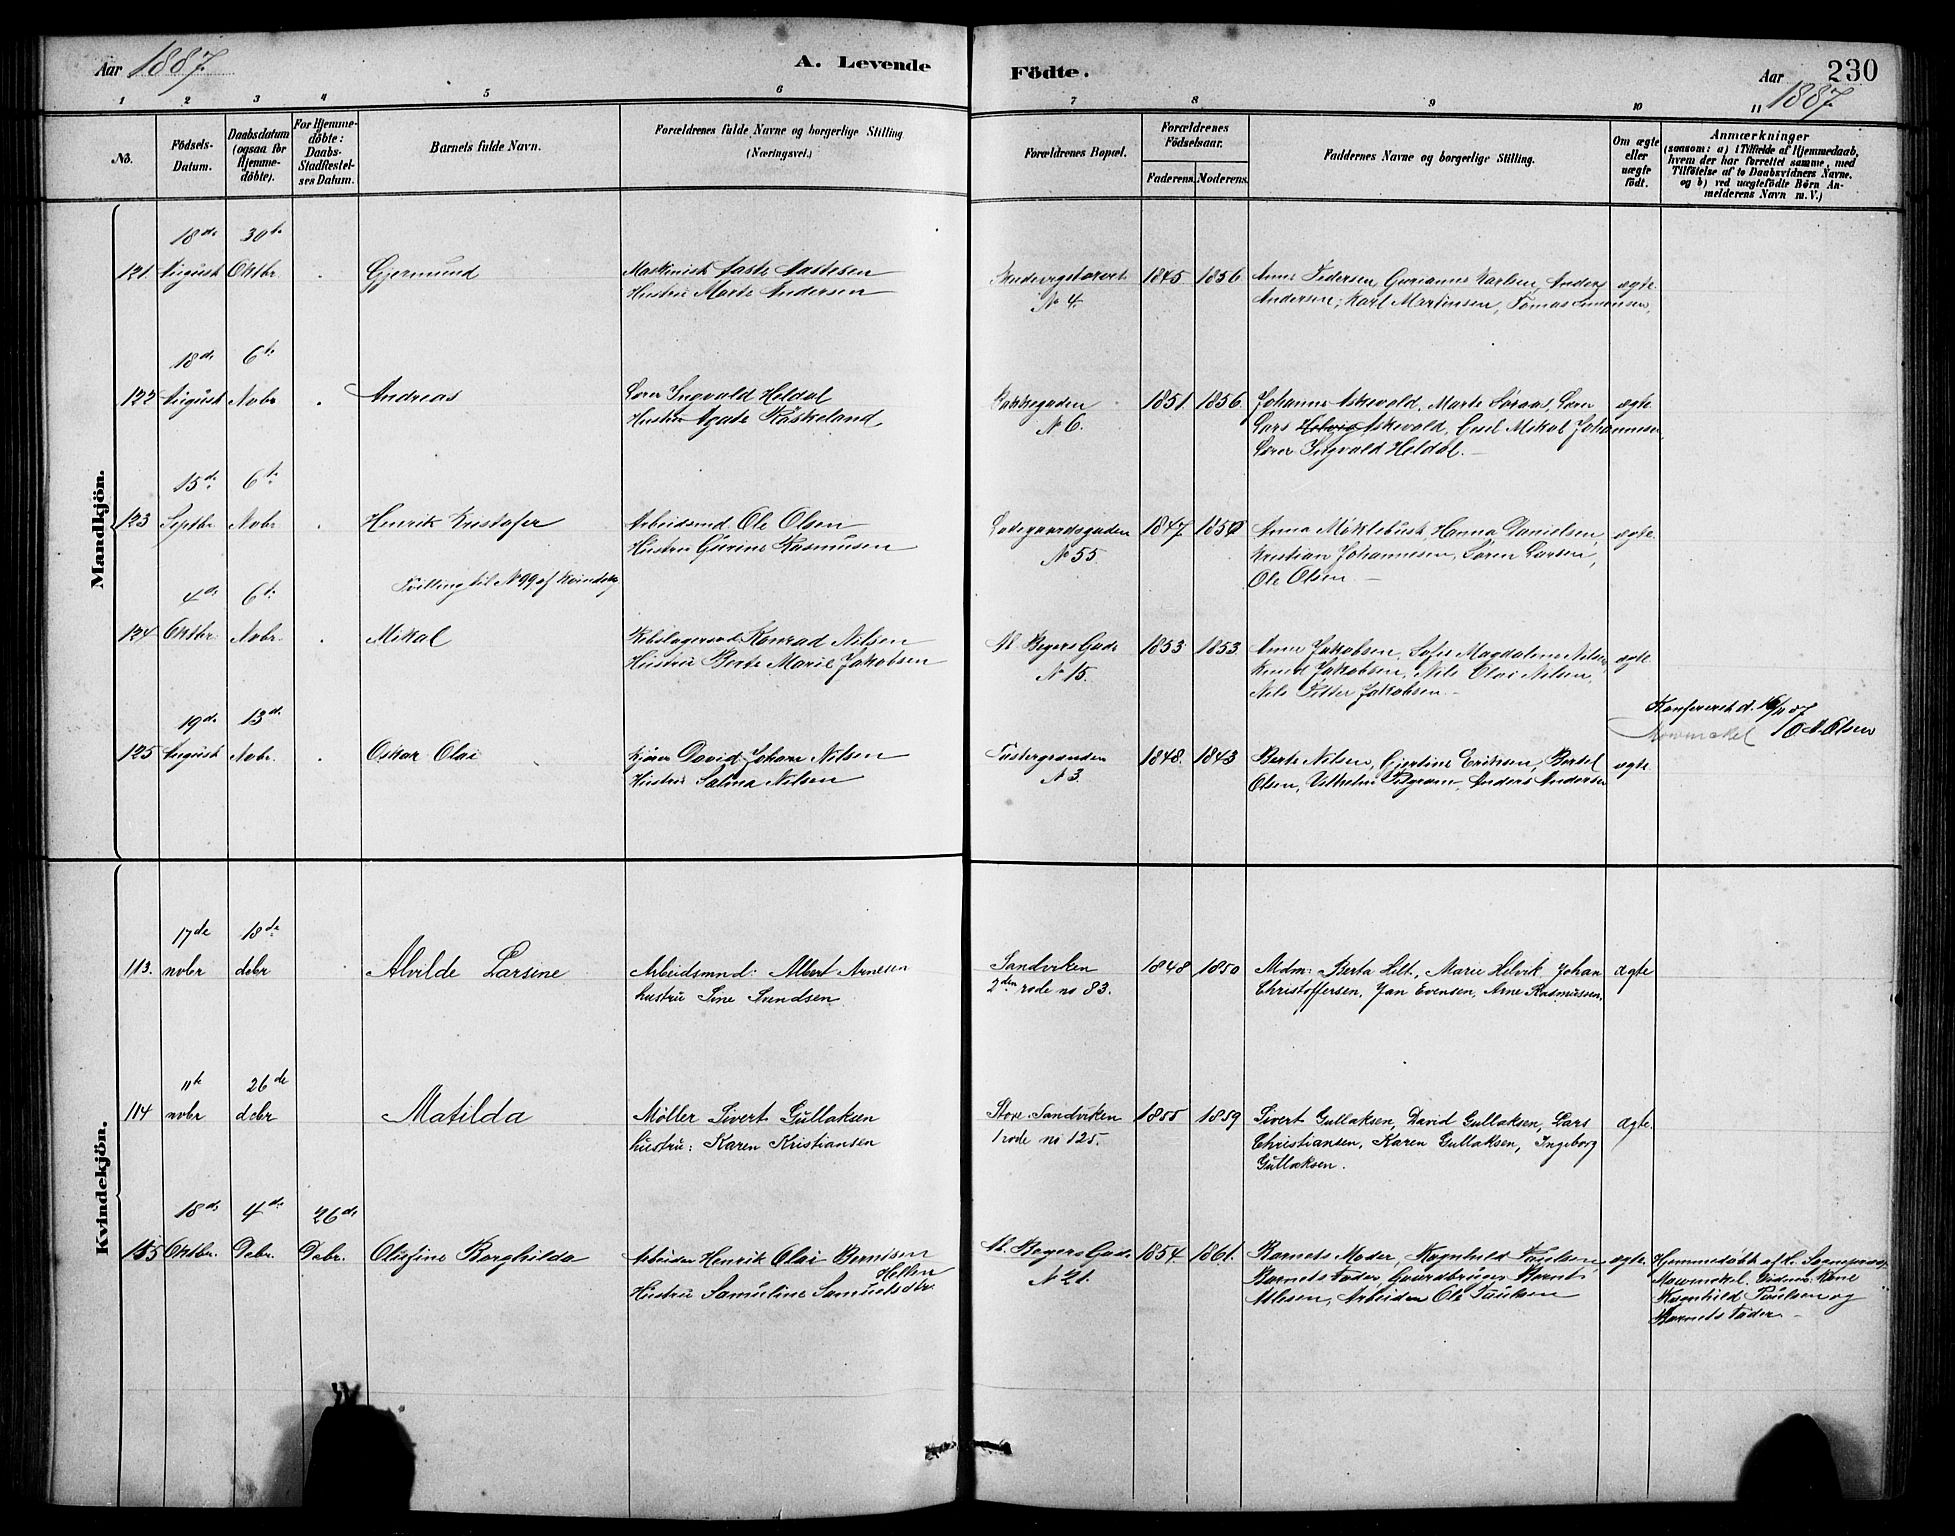 Aar 1887
A. Levende
Födte.
Aar 1887.
230
1 2 3 4 5 6 7 8 9 10 11
No.
Födsels-
Datum.
Daabsdatum
(ogsaa for
Hjemme-
döbte).
For Hjemme-
döbte:
Daabs-
Stadfæstel-
ses Datum.
Barnets fulde Navn.
Forældrenes fulde Navne og borgerlige Stilling.
(Næringsvei.)
Forældrenes Bopæl.
Forældrenes
Födselsaar.
Faderens. Moderens.
Faddernes Navne og borgerlige Stilling.
Om ægte
eller
uægte
födt.
Anmærkninger
(saasom: a) i Tilfælde af Hjemmedaab,
hvem der har forrettet samme, med
Tilföielse af to Daabsvidners Navne.
og b) ved uægtefödte Börn An-
melderens Navn m. V.)
Mandkjön.
18de 30te
121 August Oktbr. Gjermund Maskinist Aaste Aastesen 1845 1856 Anne Pedersen, Gurianne Karlsen, Anders ægte.
Hustru Marte Andersen No 4. Andersen, Karl Martinsen, Tomas Simensen,
18de 6te
122 August Novbr. Andreas Ingvald Heldal 1851. 1856. Johanne Askevold, Marte ægte.
Hustru Agate No 6. Lars Askevold, Gesel Mikal Johannesen,
Ingvald Heldal.
15de 6te
123 Septbr. Novbr. Henrik Kristofer Arbeidsmd. Ole Olsen Ladegaardsgaden 1847. 1850 Anna Myklebust, Hanna Danielsen, ægte.
Hustru Gurine Rasmusen No 55. Kristian Johannesen, Søren Larsen,
Ole Olsen
Tvilling til No 99 af Kvindekj.
4de 6te
124 Oktbr. Novbr. Mikal Konrad Nilsen M. Beyers Gade 1853. 1853. Anne Jakobsen, Sofie Magdalene Nilsen, ægte.
Hustru Berte Marie Jakobsen No 15. Knud Jakobsen, Nils Olai Nilsen,
Nils Petter Jakobsen.
19de 13de
125 August Novbr. Oskar Olai Kjører David Johan Nilsen 1848. 1843 Berte Nilsen, Gjertine Eriksen, Bertel ægte.
Hustru Salina Nilsen No 3. Olsen, Vilhelm Pilgram, Anders Andersen
Konfereret d. 16/11 87
Mowinckel / O M Olsen
Kvindekjön.
17de 18de
113. novbr debr Alvilde Larsine Arbeidsmnd: Albert Arnesen Sandviken 1848 1850 Mdm: Berta Hilt, Marie Helvik, Johan ægte
hustru Sine Svendsen. 2den rode no 83. Christoffersen, Jan Evensen, Arne Rasmussen.
11te 26de
114 novbr debr Matilda Møller Sivert Gullaksen Store Sandviken 1855 1859 Sivert Gullaksen, David Gullaksen, Lars ægte.
hustru: Karen Kristiansen 1 rode no 125. Christiansen, Karen Gullaksen, Ingeborg
Gullaksen.
18de 4de 26de
115 Oktbr. Debr. Debr. Oliefine Borghilda Arbeider Henrik Olai Berntsen M. Beyers Gade 1854. 1861. Barnets Moder, Ragnhild Paulsen, ægte. Hjemmedøbt af
Hellen
Hustru Samuline Samuelsdtr. No 21. Barnets Fader, Gaardbruger Bernt Mowinckel. Kone
Arbeider Ole Paulsen Ragnhild Paulsen og
Barnets Fader.